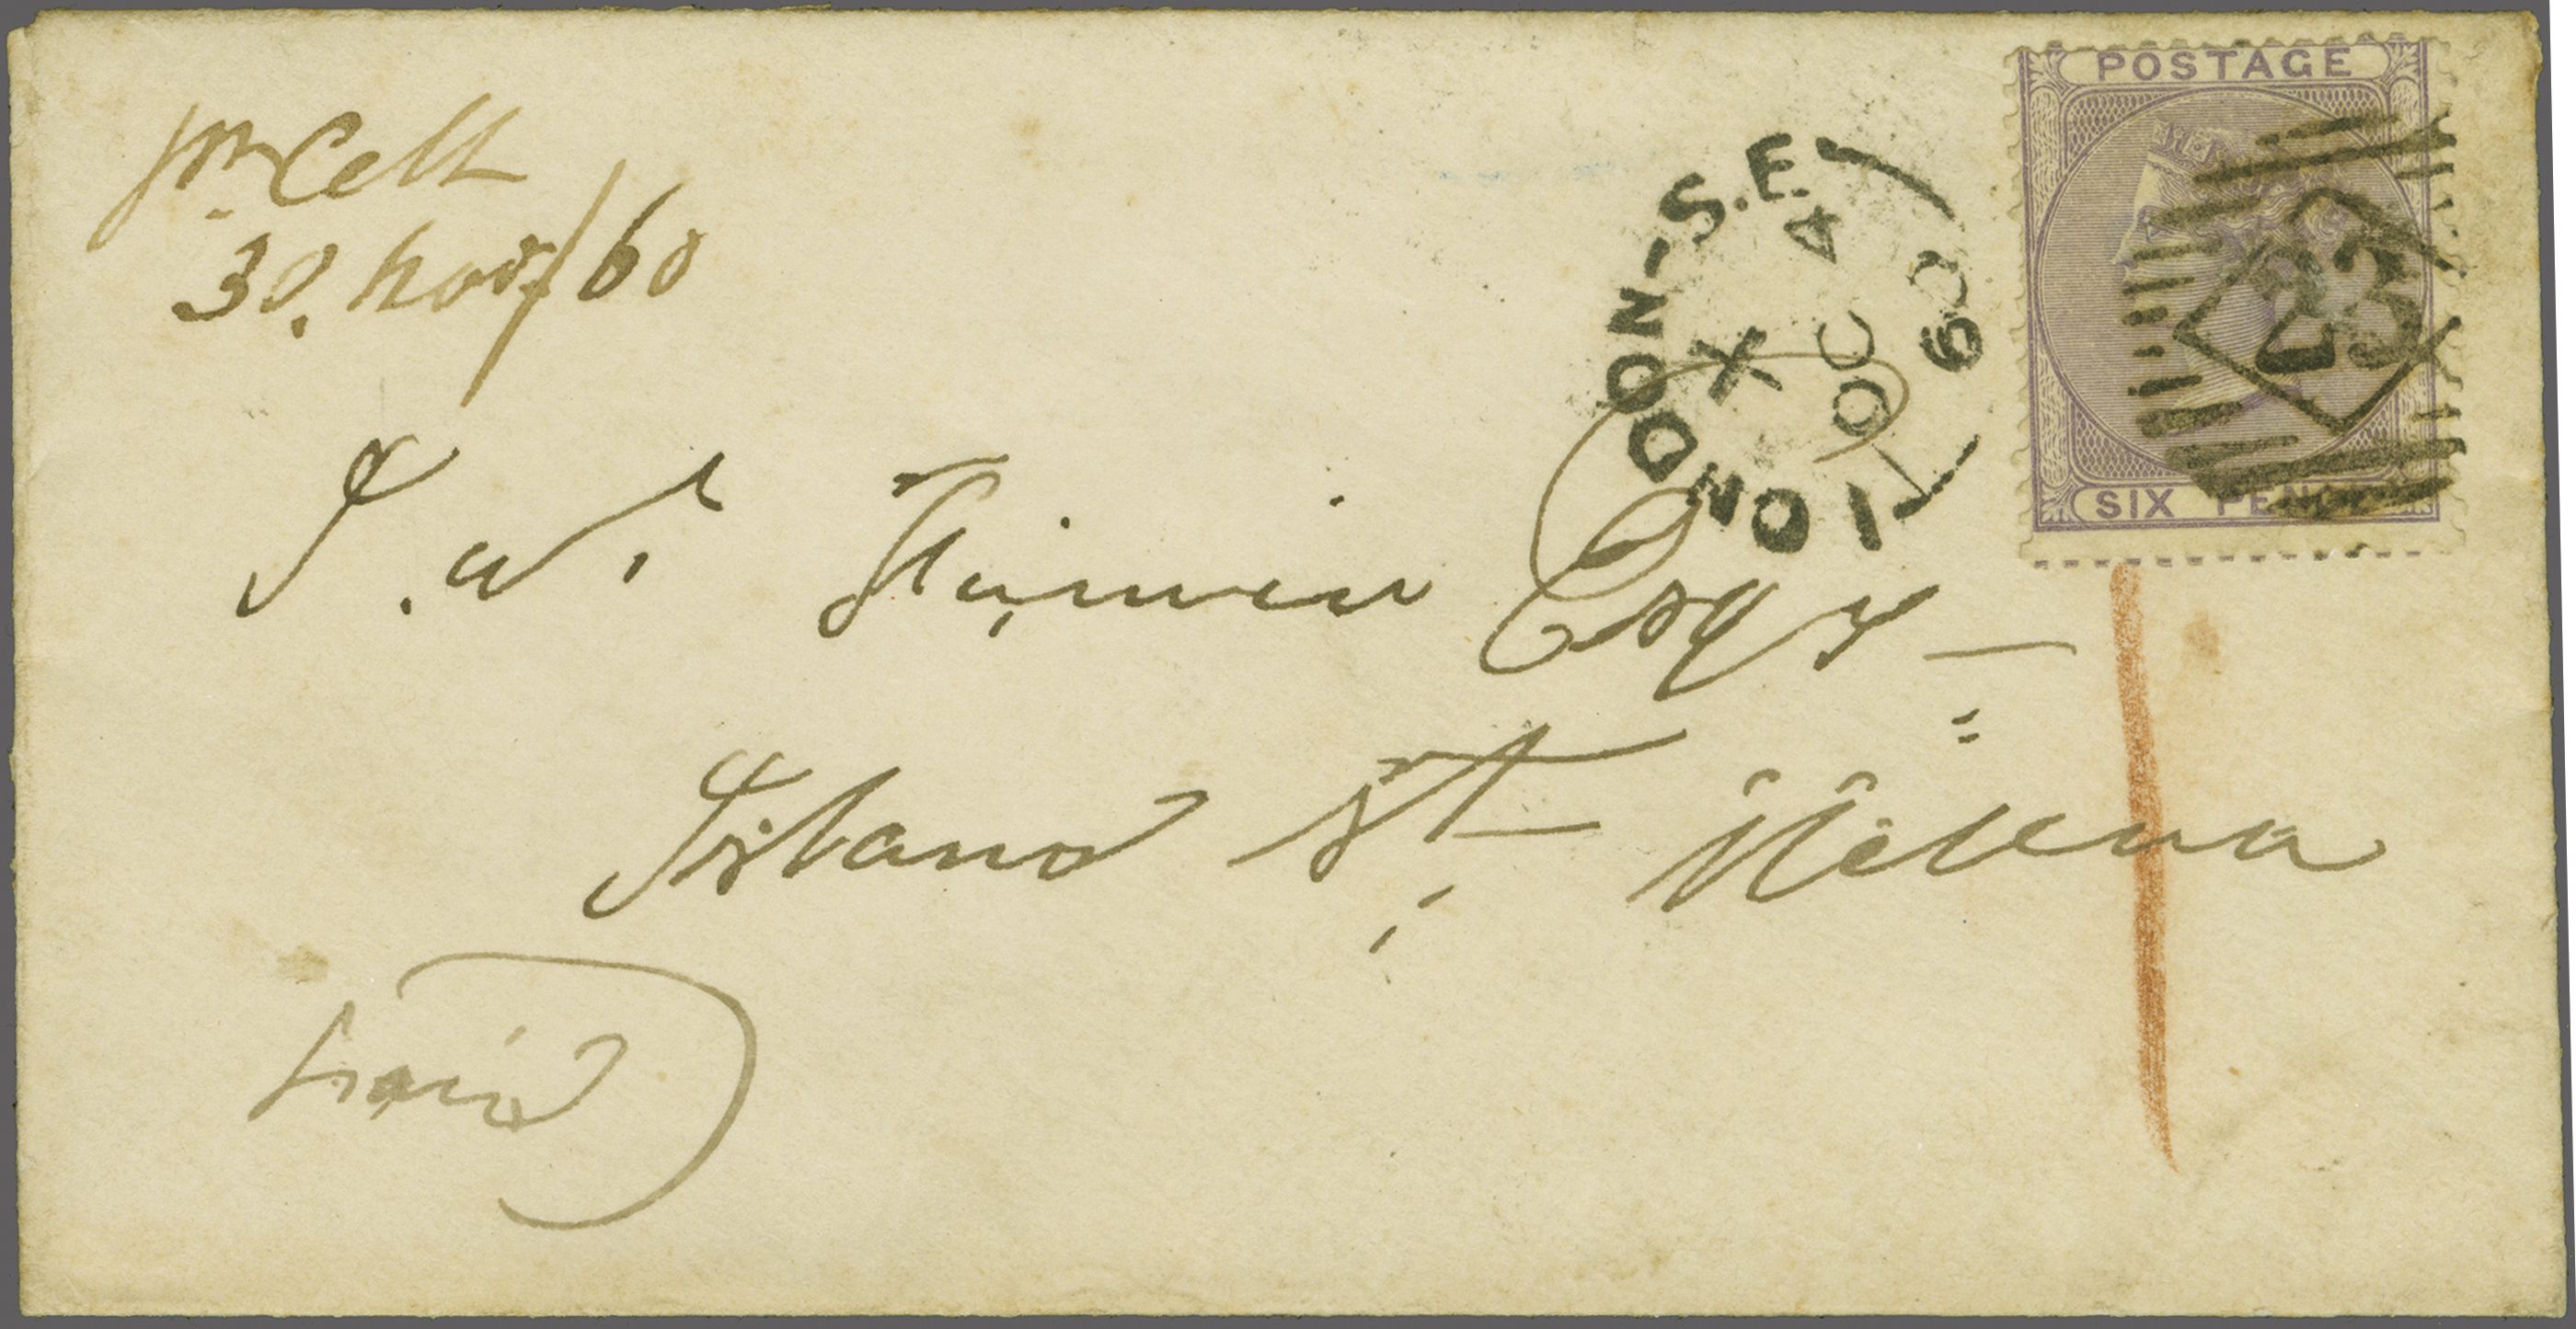 pr Celt
30. Nov/60
POSTAGE
SIX PENCE
LONDON-S.E.
X
OC 4
60
Esqr
Island St Helena
Paid